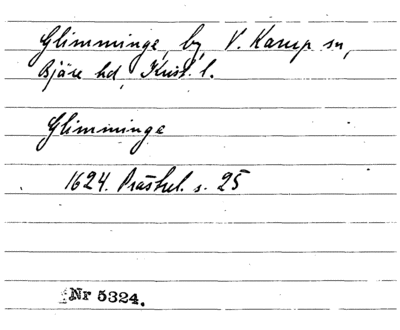 Glimminge, by, V. Karup sn,
Bjäre hd, Krist. l.
Glimminge
1624. Prästrel. s. 25
Nr 5324.